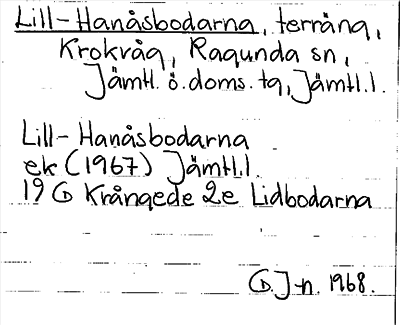 Lill-Hanåsbodarna, terräng,
Krokvåg, Ragunda sn,
Jämtl. ö. doms. tg, Jämtl. l.
Lill-Hanåsbodarna
ek (1967) Jämtl. l.
19 G Krångede 2e Lidbodarna
G. J-n. 1968.